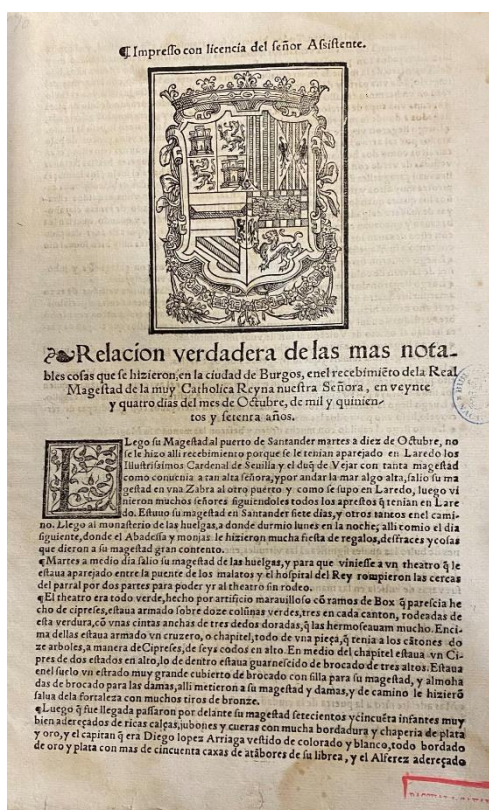 ¶ Impresso con licencia del señor Assistente.
Relacion verdadera de las mas nota-
bles cosas que se hizieron, en la ciudad de Burgos, enel recebimiẽto dela Real
Magestad de la muy Catholica Reyna nuestra Señora, en veynte
y quatro dias del mes de Octubre, de mil y quinien-
tos y setenta años.
LLego su Magestad al puerto de Santander martes a diez de Octubre, no
se le hizo alli recebimiento porque se le tenian aparejado en Laredo los
Illustrissimos Cardenal de Seuilla y el duq̃ de Vejar con tanta magestad
como conuenia a tan alta señora, y por andar la mar algo alta, salio su ma
gestad en vna Zabra al otro puerto y como se supo en Laredo, luego vi
nieron muchos señores siguiendoles todos los aprestos q̃ tenian en Lare
do. Estuuo su magestad en Santander siete dias, y otros tantos enel cami-
no. Llego al monasterio de las huelgas, a donde durmio lunes en la noche; alli comio el dia
siguiente, donde el Abadessa y monjas le hizieron mucha fiesta de regalos, desfraces y cosas
que dieron a su magestad gran contento.
¶ Martes a medio dia salio su magestad de las huelgas, y para que viniesse a vn theatro q̃ le
estaua aparejado entre la puente de los malatos y el hospital del Rey rompieron las cercas
del parral por dos partes para poder yr al theatro sin rodeo.
¶ El theatro era todo verde, hecho por artificio marauilloso cõ ramos de Box q̃ parescia he
cho de cipreses, estaua armado sobre doze colũnas verdes, tres en cada canton, rodeadas de
esta verdura, cõ vnas cintas anchas de tres dedos doradas, q̃ las hermoseauam mucho. Enci-
ma dellas estaua armado vn cruzero, o chapitel, todo de vna pieça, q̃ tenia a los cãtones do
ze arboles, a manera de Cipreses, de seys codos en alto. En medio del chapitel estaua vn Ci-
pres de dos estados en alto, lo de dentro estaua guarnescido de brocado de tres altos. Estaua
enel suelo vn estrado muy grande cubierto de brocado con silla para su magestad, y almoha
das de brocado para las damas, alli metieron a su magestad y damas, y de camino le hizierõ
salua dela fortaleza con muchos tiros de bronze.
¶ Luego q̃ fue llegada passaron por delante su magestad setecientos y cincuẽta infantes muy
bien adereçados de ricas calças, jubones y cueras con mucha bordadura y chaperia de plata
y oro, y el capitan q̃ era Diego lopez Arriaga vestido de colorado y blanco, todo bordado
de oro y plata con mas de cincuenta caxas de atãbores de su librea, y el Alferez adereçado